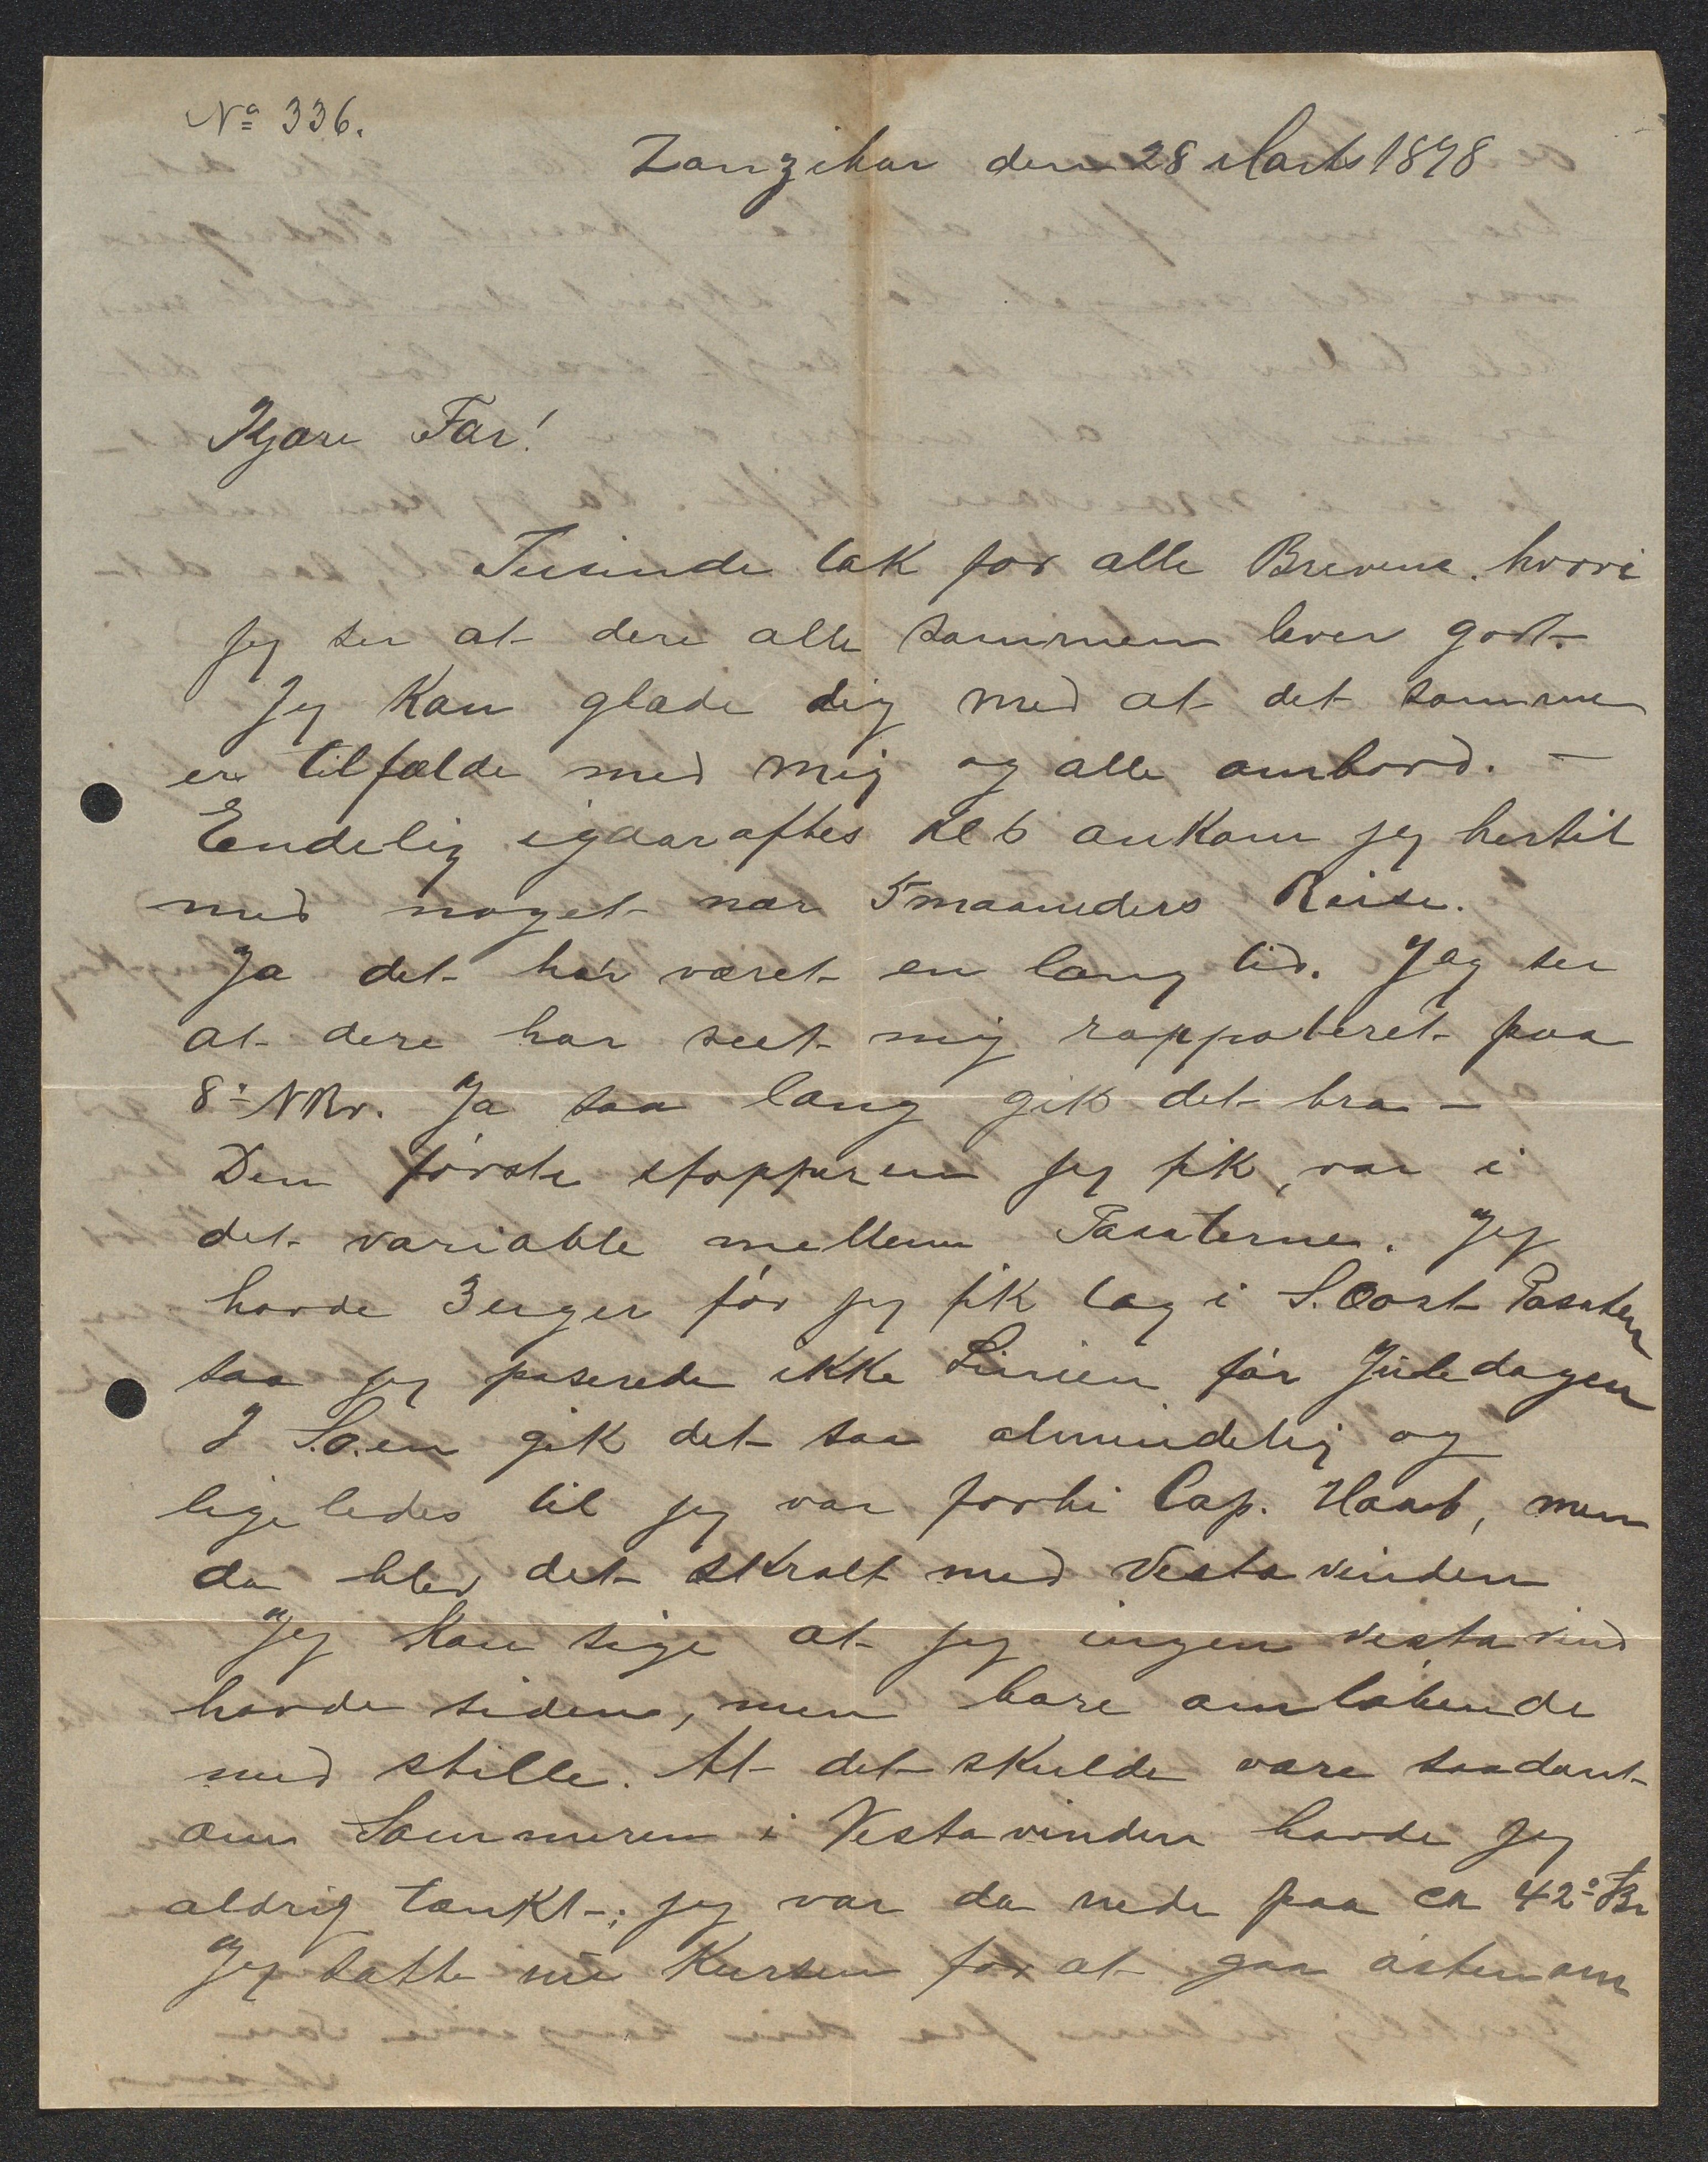 No 336.
Zanzibar den 28 Marts 1898
Kjære Far!
Tusinde tak for alle Brevene. hvori
jeg ser at dere alle sammen lever godt.
Jeg kan glæde dig med at det samme
er tilfælde med mig og alle ombord. –
Endelig igaaraftes Kl 6 ankom jeg hertil
med noget nær 5 maaneders Reise.
Ja det har været en lang tid. Jeg ser
at dere har seet mig rapporteret paa
8° NBr. Ja saa lang gik det bra –
Den første stopperen jeg fik, var i
det variable mellem Passaterne. Jeg
havde 3 uger før jeg fik tag i S.Oost Passaten
saa jeg paserede ikke Linien før Juledagen
I S.O.en gik det saa almindelig og
ligeledes til jeg var forbi Cap. Haab, men
da blev det skralt med Vestavinden
Jeg kan sige at jeg ingen vestavind
havde siden, men bare omløbende
med stille. At det skulde være saadant
om Sommeren i Vestavinden havde jeg
aldrig tænkt; jeg var da nede paa ca 42° Br
Jeg satte nu Kursen for at gaa østenom